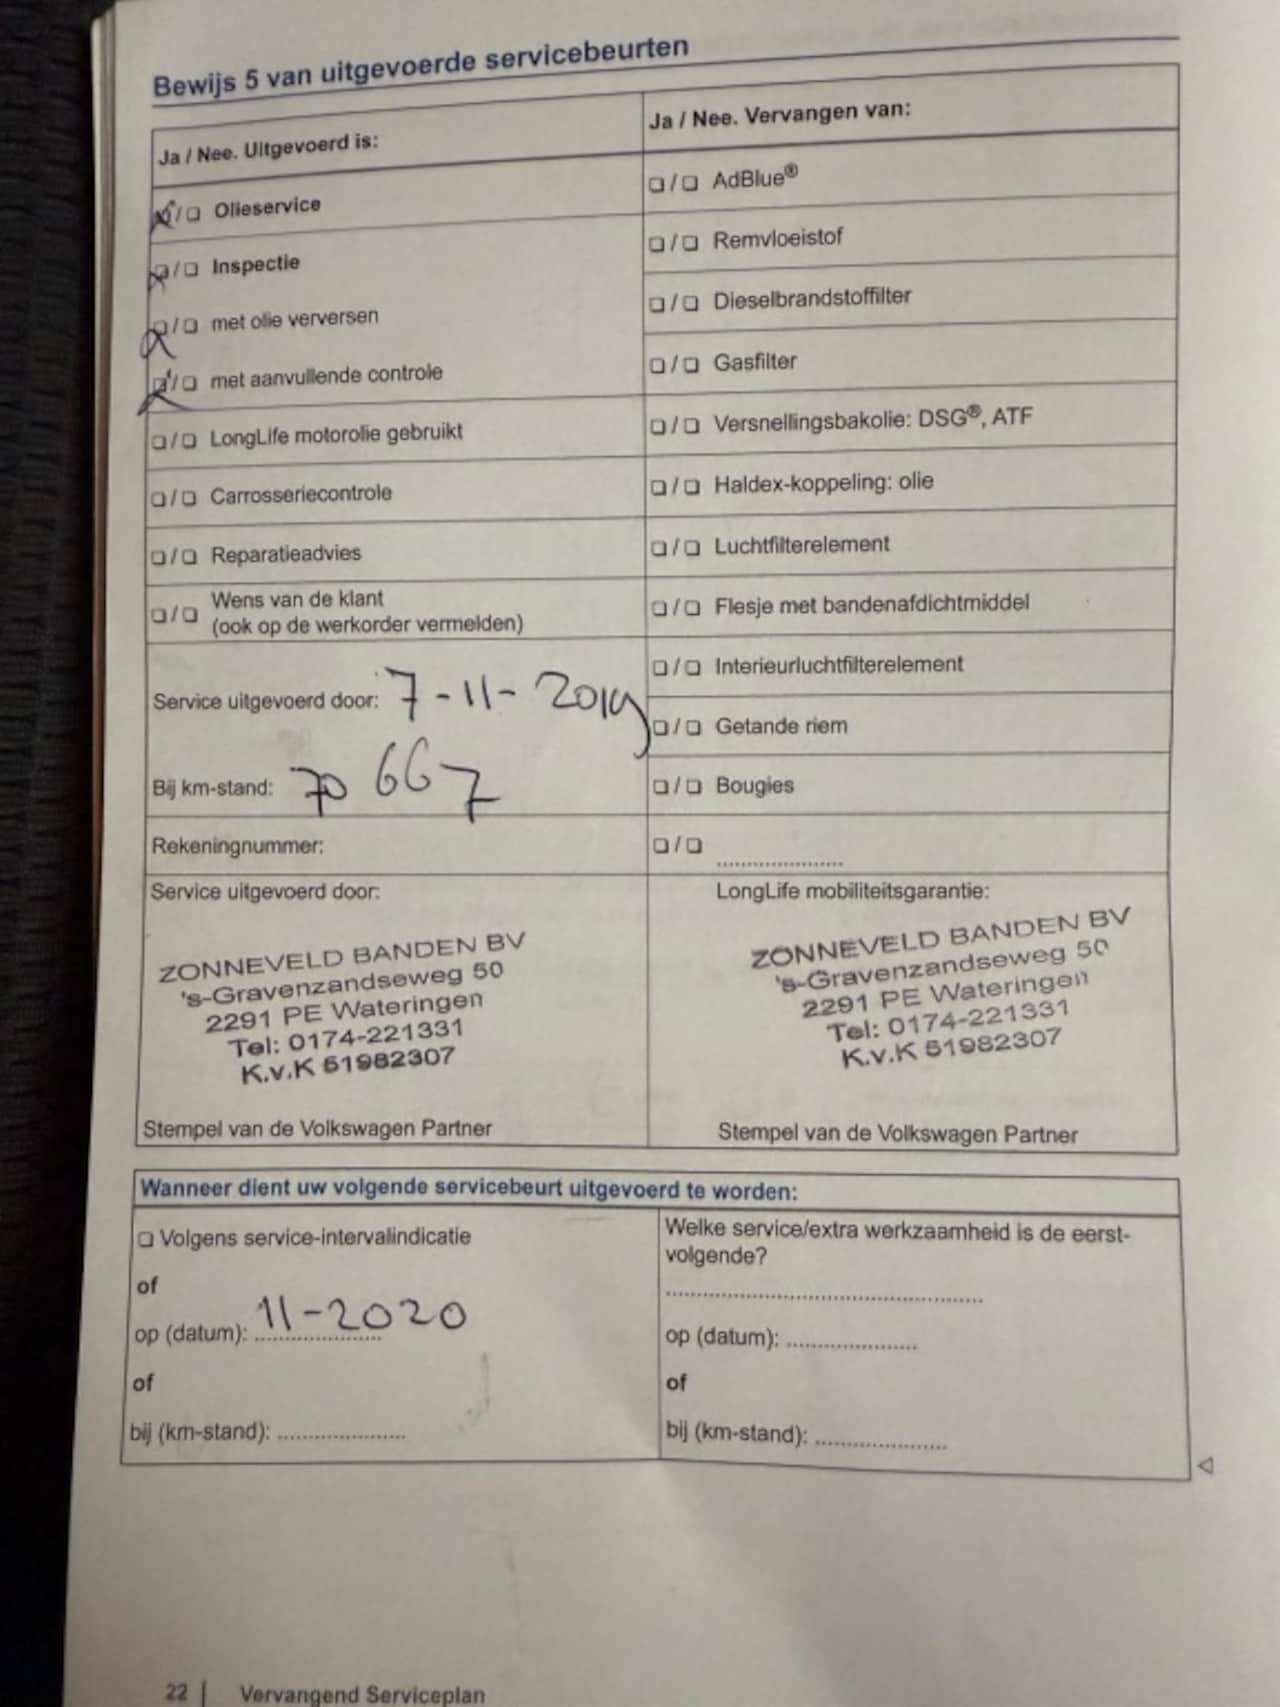 Bewijs 5 van uitgevoerde servicebeurten
Ja / Nee. Uitgevoerd is:
❏ / ❏ Olieservice
❏ / ❏ Inspectie
❏ / ❏ met olie verversen
❏ / ❏ met aanvullende controle
❏ / ❏ LongLife motorolie gebruikt
❏ / ❏ Carrosseriecontrole
❏ / ❏ Reparatieadvies
❏ / ❏ Wens van de klant
(ook op de werkorder vermelden)
Service uitgevoerd door: 7-11-2019
Bij km-stand: 70 667
Rekeningnummer:
Service uitgevoerd door:
ZONNEVELD BANDEN BV
's-Gravenzandseweg 50
2291 PE Wateringen
Tel: 0174-221331
K.v.K 51982307
Stempel van de Volkswagen Partner
Ja / Nee. Vervangen van:
❏ / ❏ AdBlue®
❏ / ❏ Remvloeistof
❏ / ❏ Dieselbrandstoffilter
❏ / ❏ Gasfilter
❏ / ❏ Versnellingsbakolie: DSG®, ATF
❏ / ❏ Haldex-koppeling: olie
❏ / ❏ Luchtfilterelement
❏ / ❏ Flesje met bandenafdichtmiddel
❏ / ❏ Interieurluchtfilterelement
❏ / ❏ Getande riem
❏ / ❏ Bougies
❏ / ❏ .....................
LongLife mobiliteitsgarantie:
ZONNEVELD BANDEN BV
's-Gravenzandseweg 50
2291 PE Wateringen
Tel: 0174-221331
K.v.K 51982307
Stempel van de Volkswagen Partner
Wanneer dient uw volgende servicebeurt uitgevoerd te worden:
❏ Volgens service-intervalindicatie
of
op (datum): 11-2020
of
bij (km-stand): .....................
Welke service/extra werkzaamheid is de eerst-
volgende?
.....................................................
op (datum): .....................
of
bij (km-stand): .....................
22 | Vervangend Serviceplan